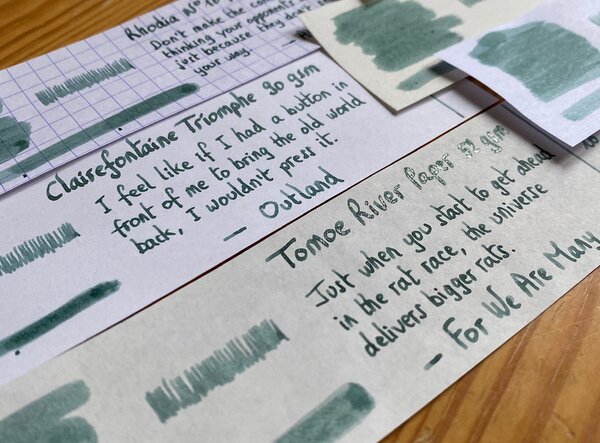 Rhodia N°16
Don't make the
thinking your opponents
just because they don't
your way.
Clairefontaine Triomphe 90 gsm
I feel like if I had a button in
front of me to bring the old world
back, I wouldn't press it.
— Outland
Tomoe River Paper 52 gsm
Just when you start to get ahead
in the rat race, the universe
delivers bigger rats.
— For We Are Many